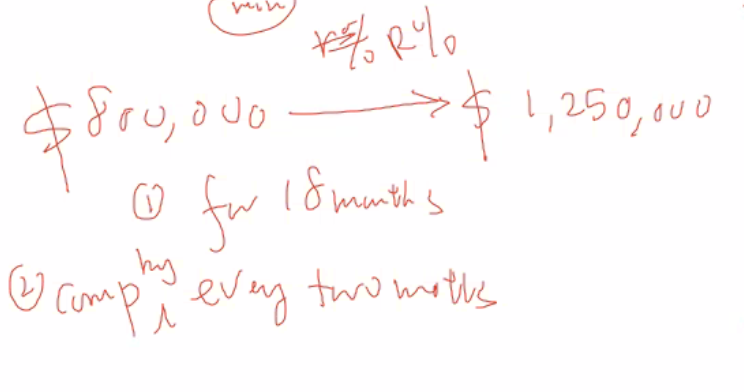 min
R%
$800,000 → $1,250,000
① for 18 months
② comp every two moths